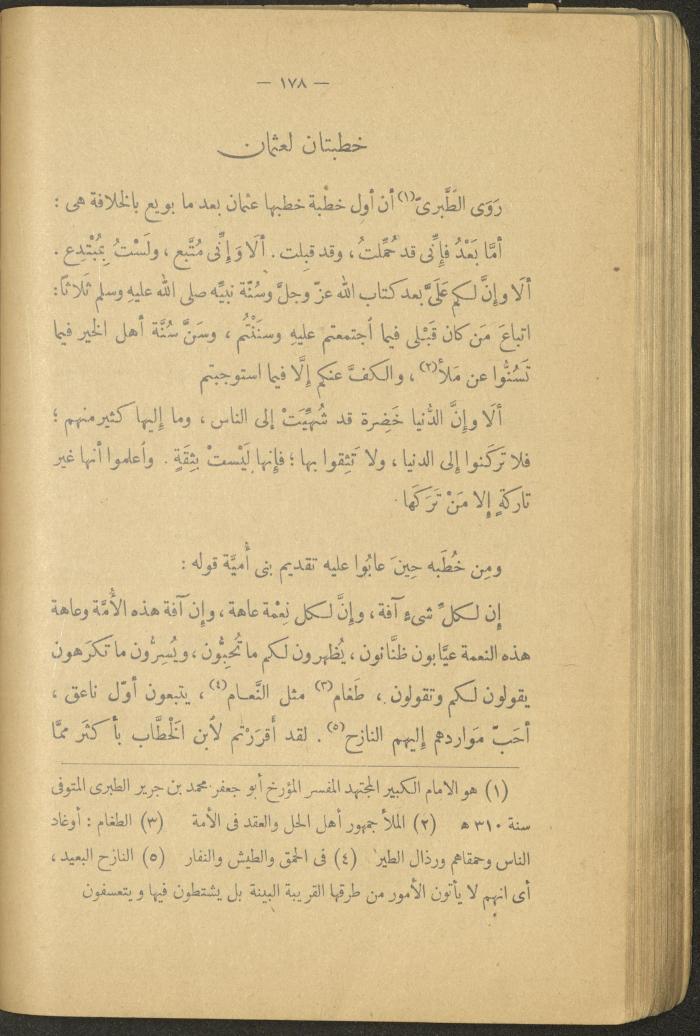 — ١٧٨ —
خطبتان لعثمان
رَوَى الطَّبرىّ(١) أن أول خطْبة خطبها عثمان بعد ما بويع بالخلافة هى :
أمَّا بَعْدُ فإنِّى قد حُمِّلتُ ، وقد قبِلت . ألَا وَإنِّى مُتَّبِع ، ولَسْتُ بِمُبْتَدِع .
ألَا وإنَّ لكم عَلَىَّ بعد كتاب الله عزّ وجلَّ وسُنَّة نبيِّه صلى الله عليهِ وسلم ثَلاثاً :
اتباعَ مَن كان قبْلى فيما أجتمعتم عليهِ وسنَنْتُم ، وسَنَّ سُنَّة أهل الخير فيما
تَسُنُّوا عن مَلأ(٢) ، والكفَّ عنكم إلَّا فيما استوجبتم
ألَا وإنَّ الدُّنيا خَضِرة قد شُهِّيَتْ إلى الناس ، وما إليها كثير منهم ؛
فلا تركَنوا إلى الدنيا ، ولا تَثِقوا بها ؛ فإنها لَيْستْ بِثِقَةٍ . وأعلموا أنها غير
تاركةٍ إلا مَنْ تَرَكَها .
ومِن خُطَبه حِينَ عابُوا عليه تقديم بنى أُميَّة قوله :
إن لكلِّ شىءٍ آفة ، وإنَّ لكل نِعْمة عاهة ، وإن آفة هذه الأُمَّة وعاهة
هذه النعمة عيَّابون ظنَّانون ، يُظهرون لكم ما تُحبُّون ، ويُسِرُّون ما تكرَهون
يقولون لكم وتقولون ، طَغام(٣) مثل النَّعام(٤) ، يتبعون أوّل ناعق ،
أحَبّ مَواردهم إليهم النازح(٥) . لقد أقررْتم لأبن الخْطَّاب بأكثَر ممَّا
(١) هو الامام الكبير المجتهد المفسر المؤرخ أبو جعفر محمد بن جرير الطبرى المتوفى
سنة ٣١٠ ه (٢) الملأ جمهور أهل الحل والعقد فى الأمة (٣) الطغام : أوغاد
الناس وحمقاهم ورذال الطير (٤) فى الحمق والطيش والنفار (٥) النازح البعيد ،
أى انهم لا يأتون الأمور من طرقها القريبة البينة بل يشتطون فيها ويتعسفون